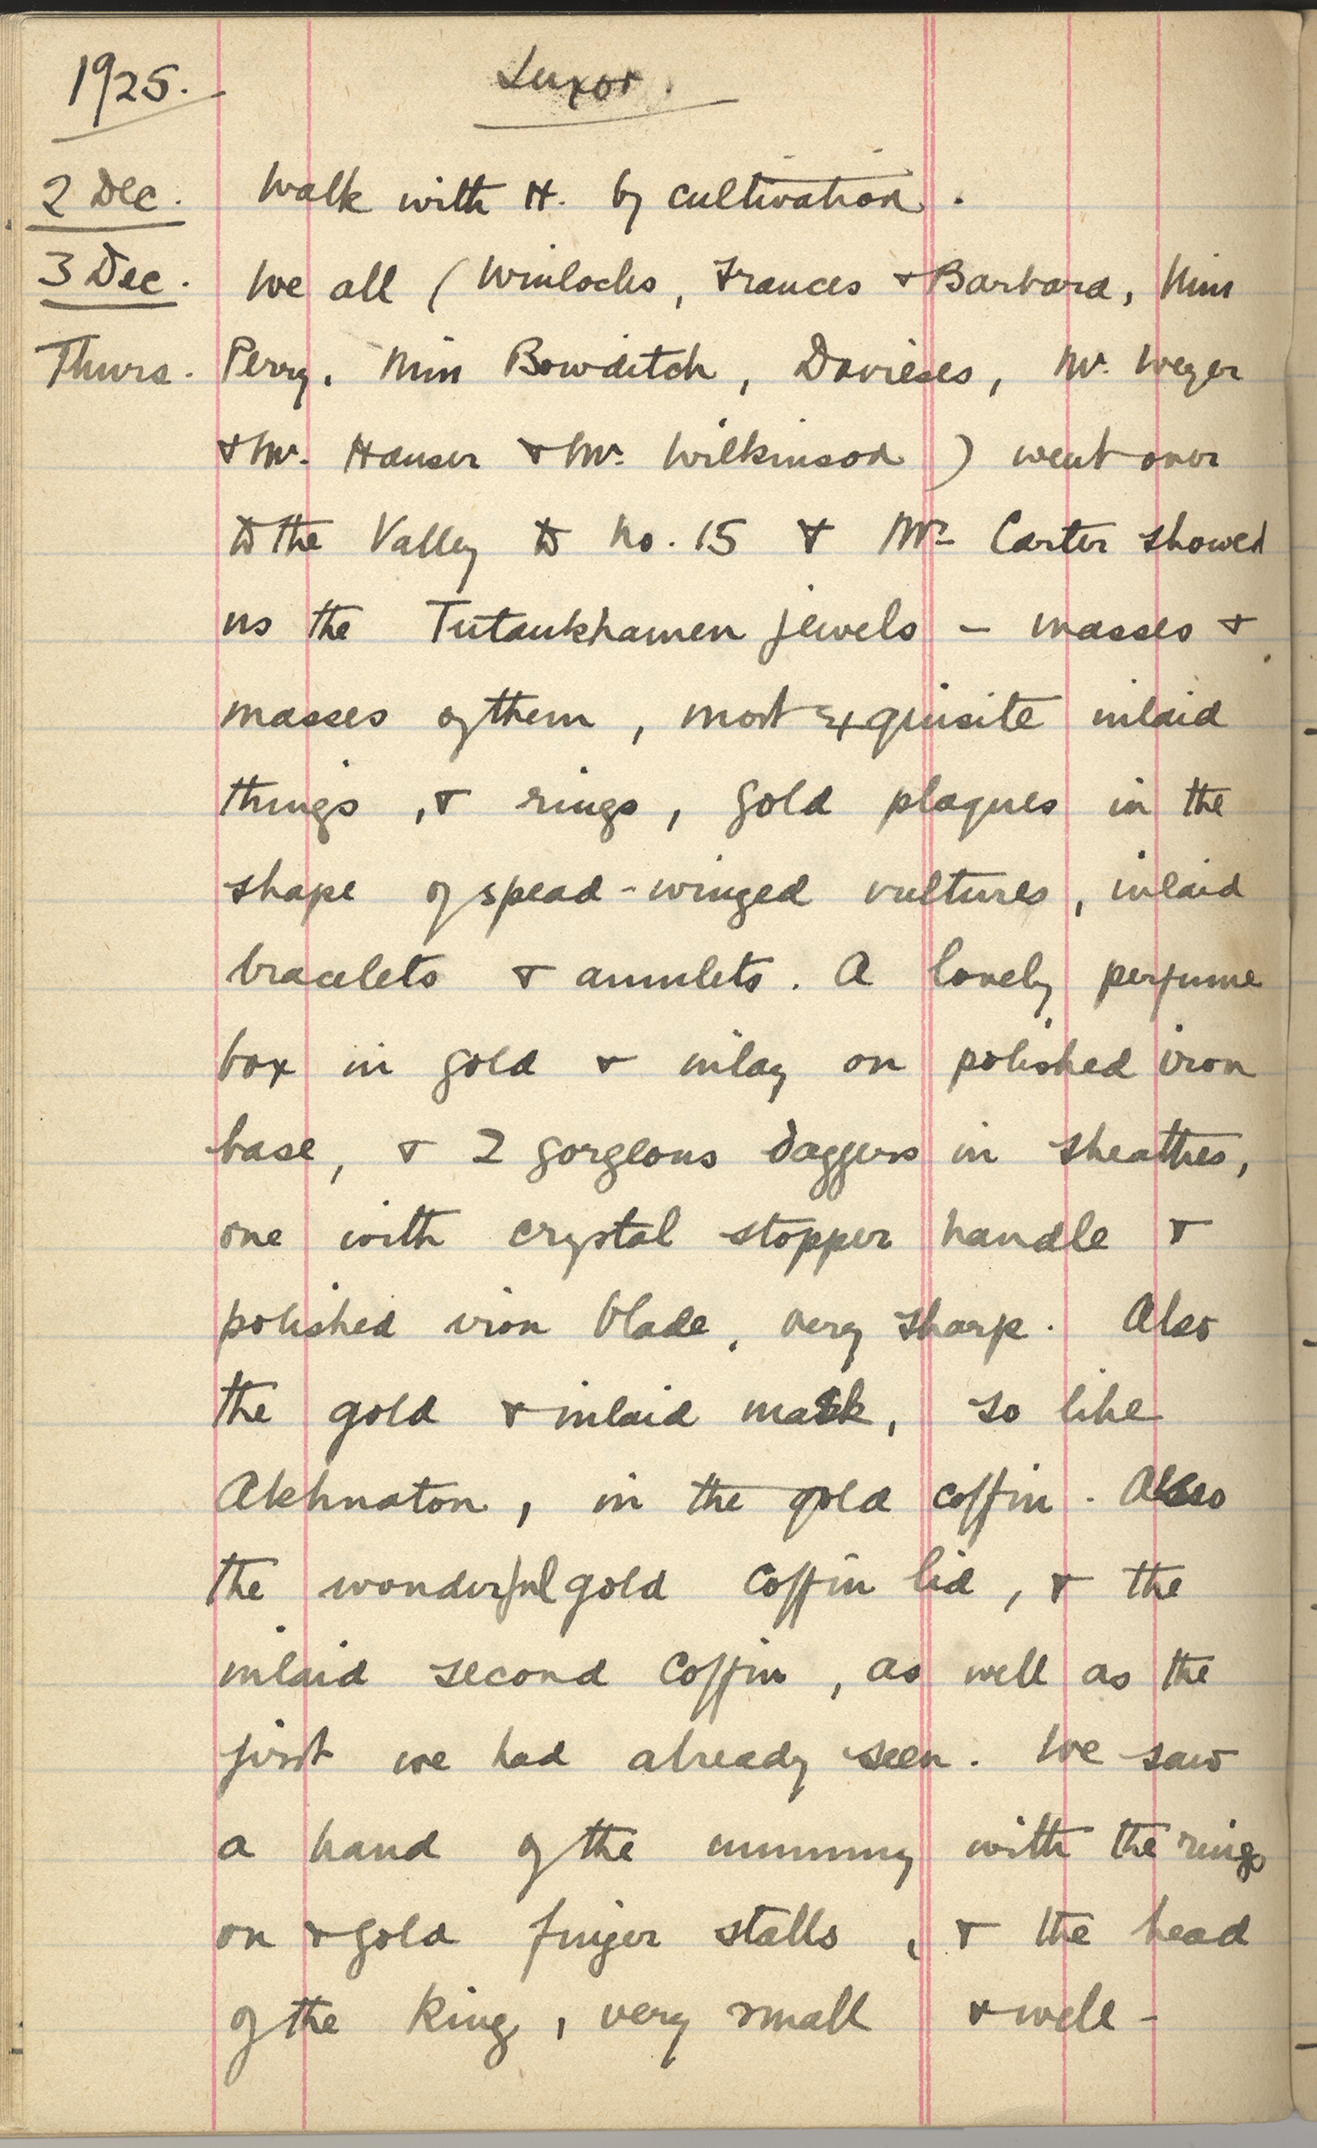 1925. Luxor.
2 Dec. Walk with H. by cultivation.
3 Dec. We all (Winlocks, Frances & Barbara, Miss
Thurs. Perry, Miss Bowditch, Davieses, Mr. Weyer
& Mr. Hauser & Mr. Wilkinson) went over
to the Valley to No. 15 & Mr. Carter showed
us the Tutankhamen jewels – masses &
masses of them, most exquisite inlaid
things, & rings, gold plaques in the
shape of spead-winged vultures, inlaid
bracelets & amulets. A lovely perfume
box in gold & inlay on polished iron
base, & 2 gorgeous daggers in sheathes,
one with crystal stopper handle &
polished iron blade, very sharp. Also
the gold & inlaid mask, so like
Akhnaton, in the gold coffin. Also
the wonderful gold coffin lid, & the
inlaid second coffin, as well as the
first we had already seen. We saw
a hand of the mummy with the rings
on & gold finger stalls, & the head
of the King, very small & well-